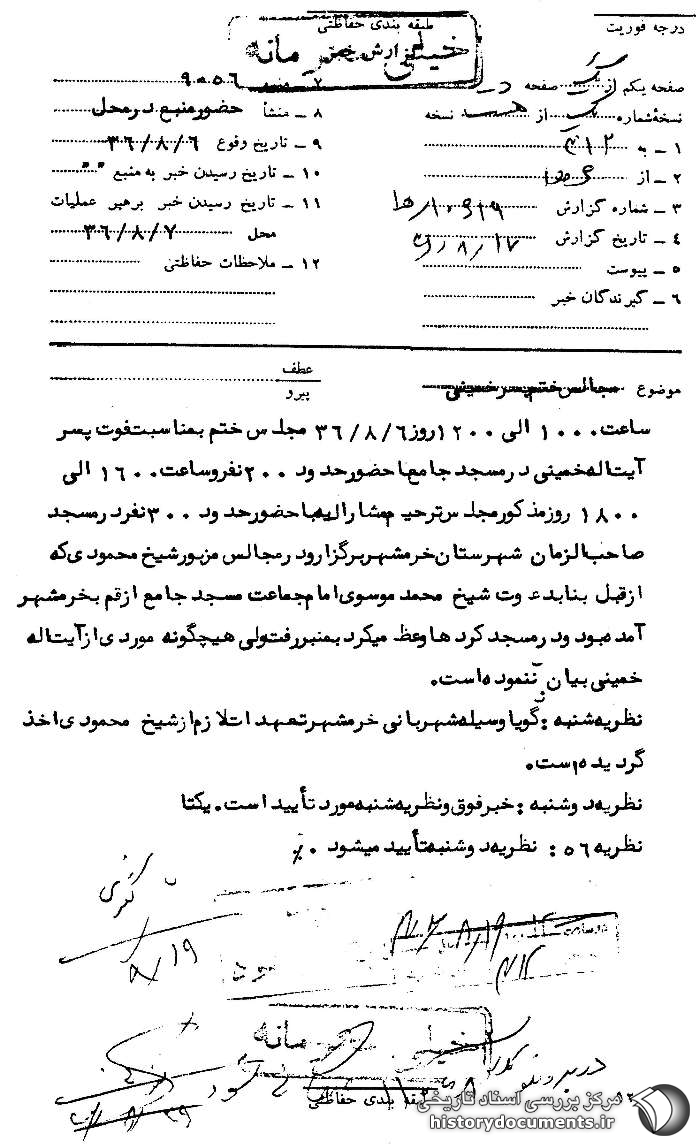 درجه فوریت
طبقه بندی حفاظتی
گزارش خبر
خیلی محرمانه
صفحه یکم از یک صفحه
نسخه شماره یک از نسخه
۱ ـ به ۳۱۲
۲ ـ از
۳ ـ شماره گزارش
۴ ـ تاریخ گزارش
۵ ـ پیوست
۶ ـ گیرندگان خبر
۸ ـ منشأ حضور منبع در محل
۹ ـ تاریخ وقوع ۳۶/۸/۶
۱۰ ـ تاریخ رسیدن خبر به منبع " "
۱۱ ـ تاریخ رسیدن خبر برهبر عملیات
محل ۳۶/۸/۷
۱۲ ـ ملاحظات حفاظتی
موضوع مجالس ختم پسر خمینی
عطف
پیرو
ساعت ۱۰۰۰ الی ۱۲۰۰ روز ۳۶/۸/۶ مجلس ختم بمناسبت فوت پسر
آیت اله خمینی در مسجد جامع با حضور حدود ۲۰۰ نفر و ساعت ۱۶۰۰ الی
۱۸۰۰ روز مذکور مجلس ترحیم مشارالیه با حضور حدود ۳۰۰ نفر در مسجد
صاحب الزمان شهرستان خرمشهر برگزار و در مجالس مزبور شیخ محمودی که
از قبل بنا بدعوت شیخ محمد موسوی امام جماعت مسجد جامع از قم بخرمشهر
آمده بود و در مسجد کردها وعظ میکرد بمنبر رفت ولی هیچگونه موردی از آیت اله
خمینی بیان ننموده است.
نظریه شنبه : گویا وسیله شهربانی خرمشهر تعهدات لازم از شیخ محمودی اخذ
گردیده است.
نظریه دوشنبه : خبر فوق و نظریه شنبه مورد تأیید است. یکتا
نظریه ۵۶ : نظریه دوشنبه تأیید میشود ٪
۸/۱۹
۳۱۲
خیلی محرمانه
طبقه بندی حفاظتی
مرکز بررسی اسناد تاریخی
historydocuments.ir